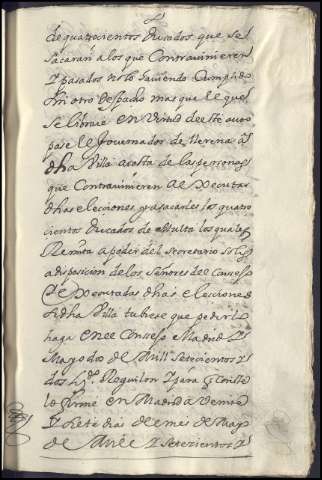 de quatrocientos Ducados que se
sacaran a los que Contravinieren
Y pasados no lo haviendo Cumplido
sin otro despacho mas que el que
se librare en Virtud deste auto
pase el Governador de Llerena a
dha Villa a costa de las personas
que Contravinieren a Executar
dhas elecciones y a sacarles los quatro
cientos Ducados de Multa los quales
Remita a poder del secretario
a disposicion de los Señores del Consejo
Executadas dhas elecciones
si dha Villa tubiese que pedir lo
haga en el Consejo Madrid
Mayo dos de Mill setecientos y
dos
lo firme en Madrid a Veinte
Y siete dias del mes de Mayo
de Mill Y setecientos y